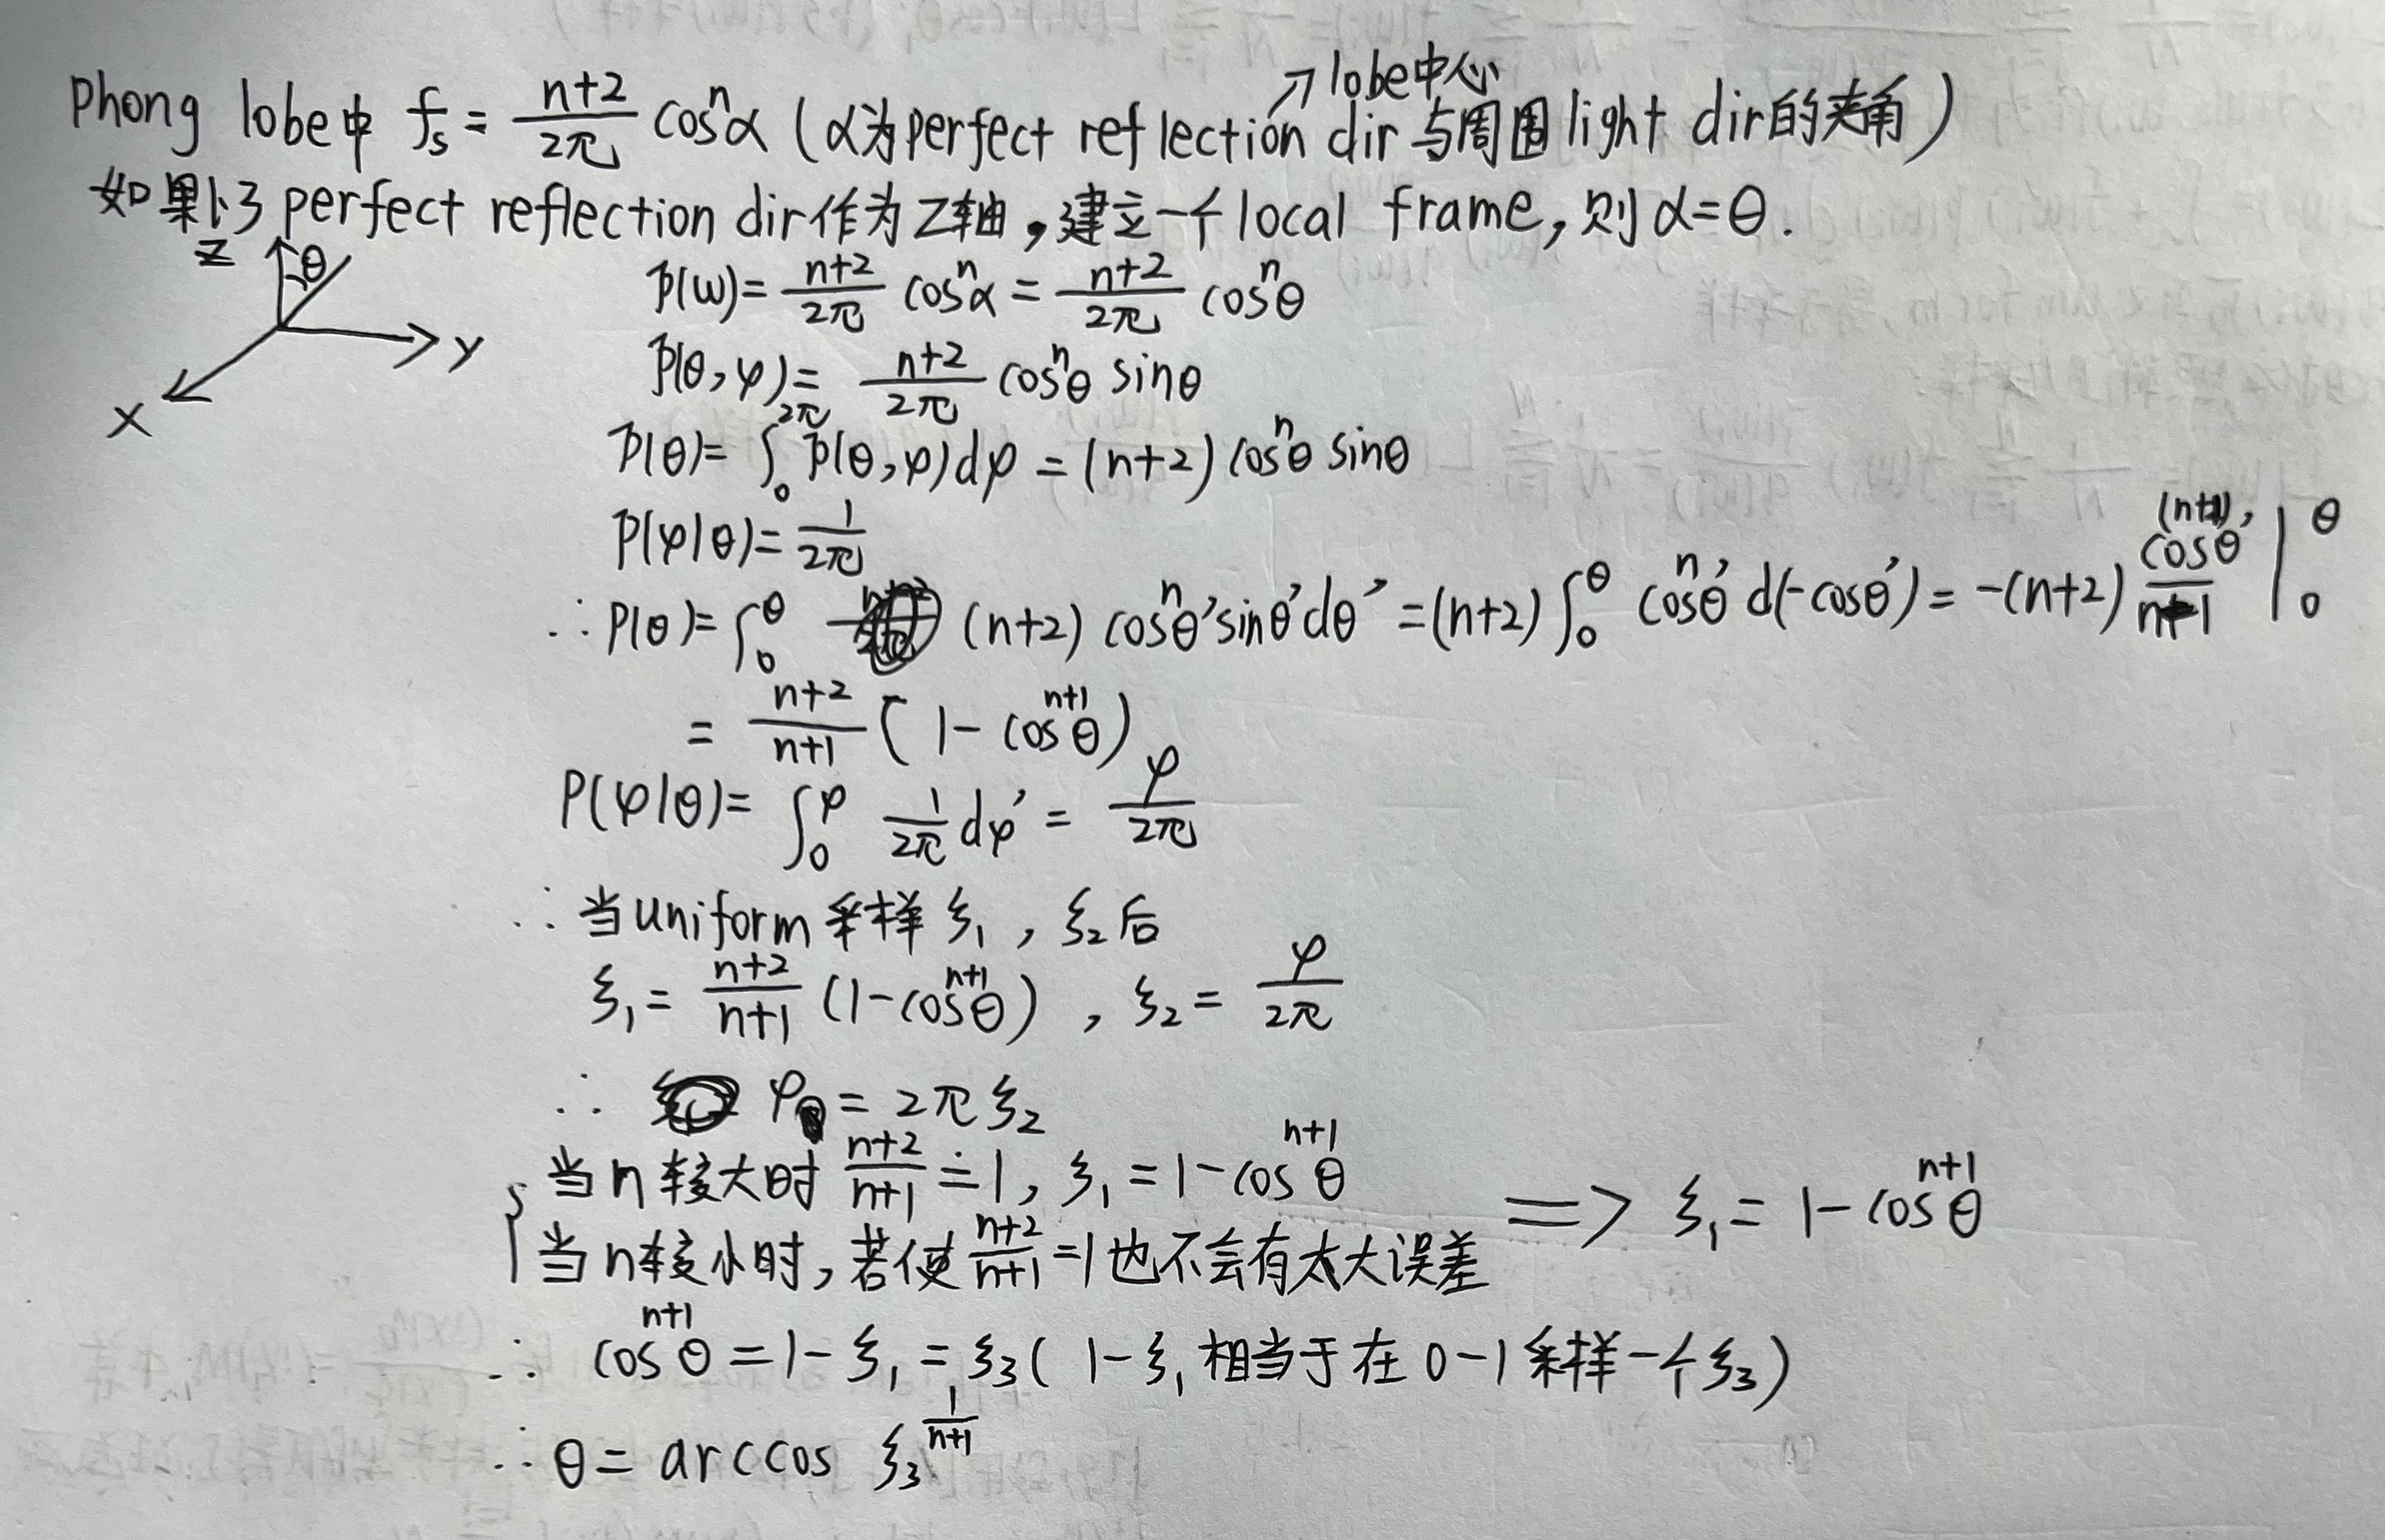 Phong lobe中 fₛ = (n+2)/(2π) cosⁿα (α为perfect reflection dir与周围light dir的夹角)
↗lobe中心
如果以perfect reflection dir作为Z轴,建立一个local frame,则α=θ.
Z θ
Y
X
p(w)= (n+2)/(2π) cosⁿα = (n+2)/(2π) cosⁿθ
p(θ,φ)= (n+2)/(2π) cosⁿθ sinθ
p(θ)= ∫₀^{2π} p(θ,φ)dφ = (n+2) cosⁿθ sinθ
p(φ|θ)= 1/(2π)
∴ P(θ)= ∫₀^θ (n+2) cosⁿθ′sinθ′dθ′ =(n+2)∫₀^θ cosⁿθ′ d(-cosθ′)= -(n+2) cos^{(n+1)}θ′/(n+1) |₀^θ
= (n+2)/(n+1) (1-cos^{n+1}θ)
P(φ|θ)= ∫₀^φ 1/(2π) dφ′ = φ/(2π)
∴ 当uniform采样ξ₁,ξ₂后
ξ₁= (n+2)/(n+1) (1-cos^{n+1}θ) , ξ₂= φ/(2π)
∴ φ = 2πξ₂
当n较大时 (n+2)/(n+1) ≐1, ξ₁=1-cos^{n+1}θ
当n较小时,若使(n+2)/(n+1)=1也不会有太大误差
=> ξ₁= 1-cos^{n+1}θ
∴ cos^{n+1}θ=1-ξ₁=ξ₃( 1-ξ₁相当于在0-1采样一个ξ₃)
∴ θ= arccos ξ₃^{1/(n+1)}